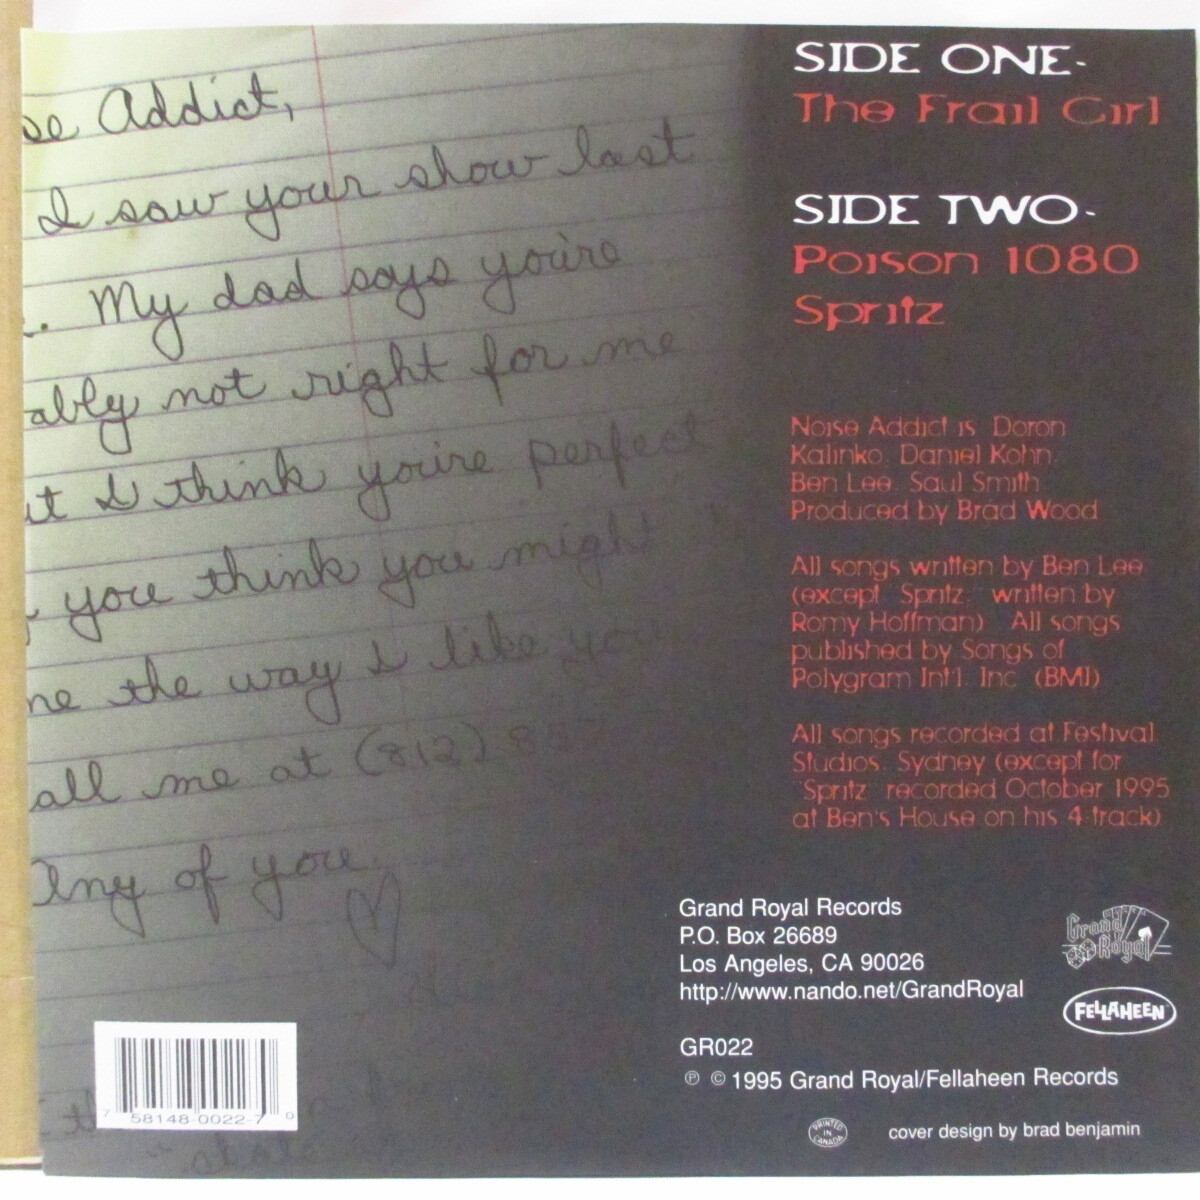 se Addict,
I saw your show last
. My dad says you're
ably not right for me
ut I think you're perfect
you think you might
me the way I like you
all me at (812) 8
Any of you
SIDE ONE-
The Frail Girl
SIDE TWO-
Poison 1080
Spritz
Noise Addict is Doron
Kalinko, Daniel Kohn,
Ben Lee, Saul Smith
Produced by Brad Wood
All songs written by Ben Lee
(except "Spritz," written by
Romy Hoffman) All songs
published by Songs of
Polygram Int'l. Inc. (BMI)
All songs recorded at Festival
Studios, Sydney (except for
"Spritz" recorded October 1995
at Ben's House on his 4-track)
Grand Royal Records
P.O. Box 26689
Los Angeles, CA 90026
http://www.nando.net/GrandRoyal
Grand Royal
FELLAHEEN
GR022
℗ © 1995 Grand Royal/Fellaheen Records
PRINTED IN CANADA
cover design by brad benjamin
7 58148-0022-7 0